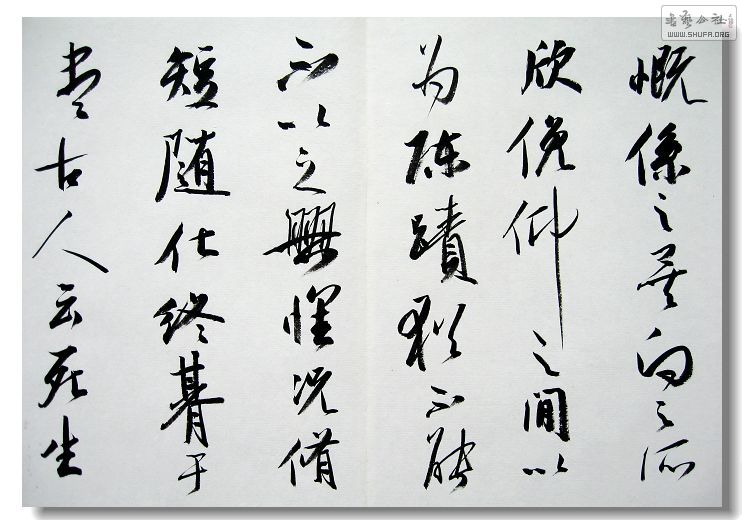 慨係之矣向之所
欣俛仰之間以
为陈蹟猶不能
不以之興懷况脩
短随化终朞于
盡古人云死生
書藝公社
WWW.SHUFA.ORG